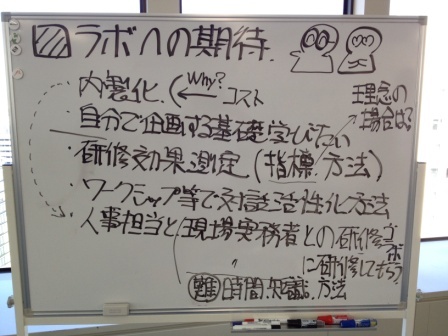 ラボへの期待.
・内製化. (Why? ← コスト
・自分で企画する基礎学びたい
理念の
場合は?
・研修効果測定 (指標.方法)
・ワークショップ等で対話活性化方法
・人事担当と現場実務者との研修コラボ
に研修してもらう
難 時間.知識.方法